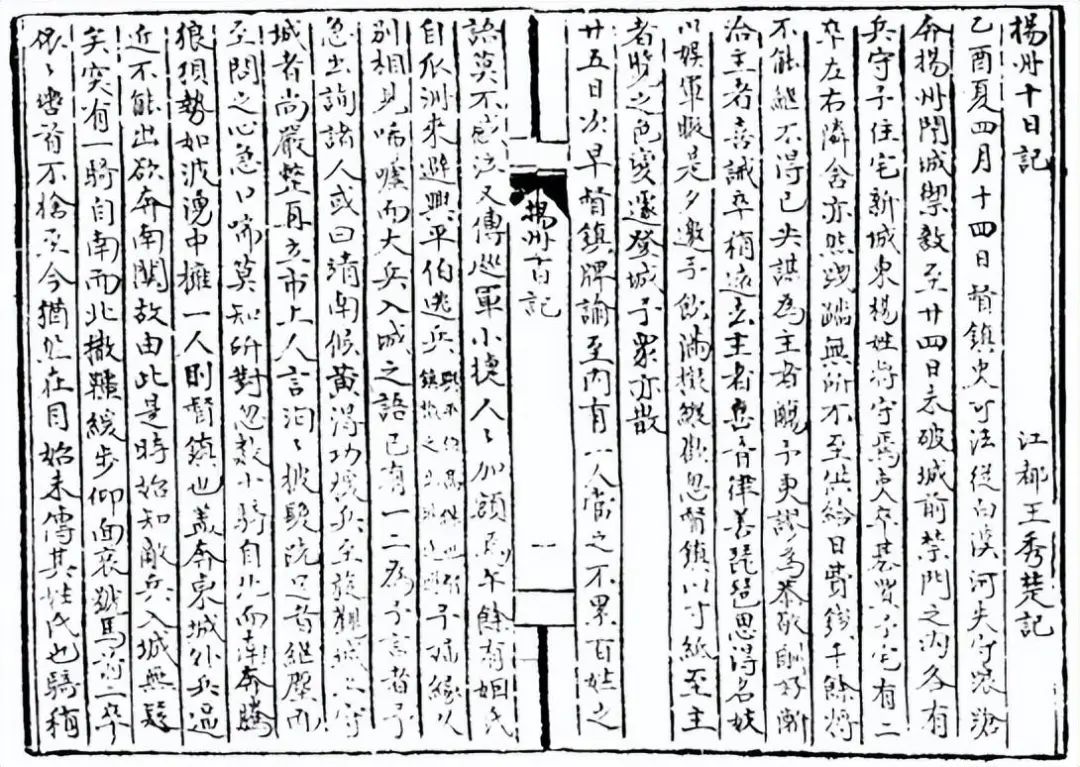 揚州十日記　江都王秀楚記
乙酉夏四月十四日督鎮史可法從白洋河失守踉蹌
奔揚州閉城禦敵至廿四日未破城前禁門之內各有
兵守予住宅新城東楊姓將守焉吏卒棊置予宅有二
卒左右隣舍亦然踐踏無所不至供給日費錢千餘將
不能繼不得已共謀為主者觴予更謬為恭敬酬好漸
洽主者喜誡卒稍遠去主者喜音律善琵琶思得名妓
以娛軍暇是夕邀予飲滿擬縱歡忽督鎮以寸紙至主
者覽之色變遽登城予眾亦散
廿五日次早督鎮牌諭至內有一人當之不累百姓之
揚州十日記　一
語莫不感泣又傳巡軍小捷人〻加額焉午餘有姻氏
自瓜洲來避興平伯逃兵興平伯高傑也督鎮檄之出城遠避予婦緣久
別相見唏噓而大兵入城之語已有一二為予言者予
急出詢諸人或曰靖南侯黃得功援兵至旋觀城上守
城者尚嚴整再至市上人言洶〻披髮跣足者繼塵而
至問之心急口喘莫知所對忽數小騎自北而南奔騰
狼狽勢如波湧中擁一人則督鎮也蓋奔東城外兵逼
近不能出欲奔南關故由此是時始知敵兵入城無疑
矣突有一騎自南而北撒韁緩步仰面哀號馬前二卒
依〻轡首不捨至今猶然在目始未傳其姓氏也騎稍